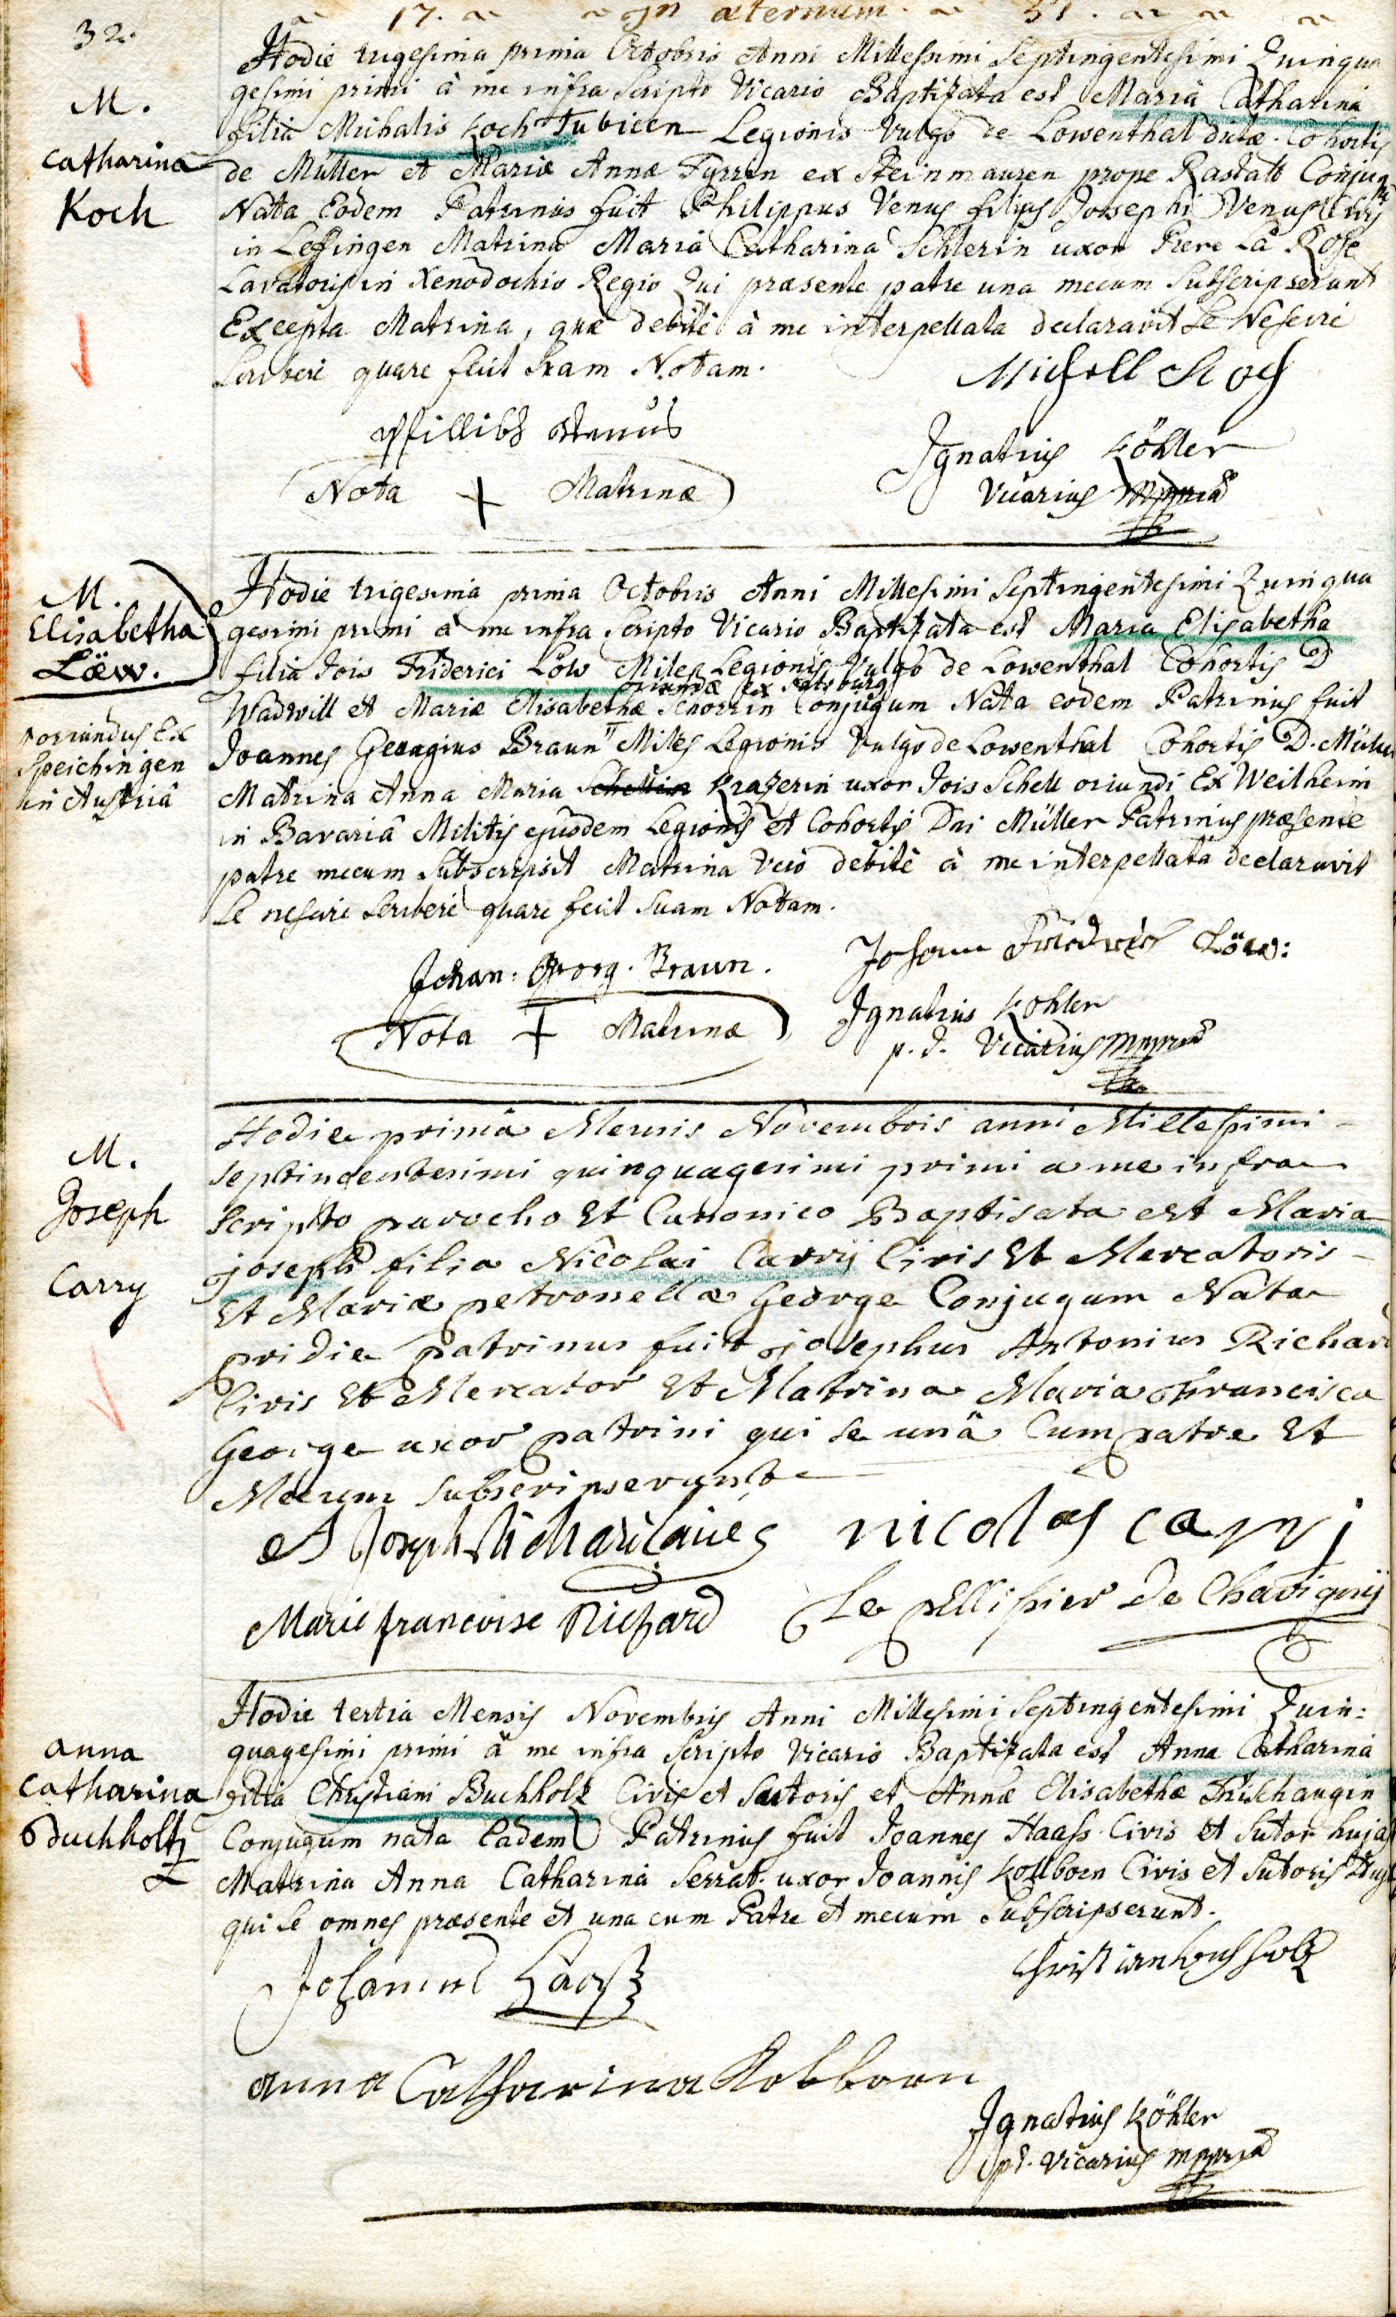 17. In æternum. 51.
32.
M.
Catharina
Koch
Hodie trigesima prima Octobris Anni Millesimi Septingentesimi Quinqua
gesimi primi à me infra Scripto Vicario Baptizata est Maria Catharina
filia Michalis Koch Tubicen Legionis vulgo de Lowenthal dictæ Cohortis
de Müller et Mariæ Annæ Tyrrin ex Steinmauren prope Rastatt Conjug
Nata Eodem Patrinus fuit Philippus Venus filius Josephi Venus Civis
in Lessingen Matrina Maria Catharina Schlerin uxor Piere La Rose
Lavatoris in Xenodochio Regio Qui præsente patre una mecum Subscripserunt
Excepta Matrina, quæ debitè à me interpellata declaravit Se Nescire
Scribere quare fecit suam Notam.
Michell Koch
Phillibs Venus
Ignatius Köhler
Nota + Matrinæ
Vicarius mppria
M.
Elisabetha
Löew.
oriundus Ex
Speichingen
in Austriâ
Hodie trigesima prima Octobris Anni Millesimi Septingentesimi Quinqua
gesimi primi à me infra Scripto Vicario Baptizata est Maria Elisabetha
filia Jois Friderici Löw Miles Legionis Vulgo de Lowenthal Cohortis D
oriundæ Ex
Wadwill et Mariæ Elisabethæ Schorrin Conjugum Nata eodem Patrinus fuit
Joannes Georgius Braun Miles Legionis Vulgo de Lowenthal Cohortis D. Müller
Matrina Anna Maria Schellin Krazerin uxor Jois Schell oriundi Ex Weilheim
in Bavariâ Militis ejusdem Legionis et Cohortis Dni Müller Patrinus præsente
patre mecum Subscripsit Matrina Vero debitè à me interpellata declaravit
Se nescire Scribere quare fecit Suam Notam.
Johan: Georg. Braun.
Johann Friedrich Löw:
Nota + Matrinæ
Ignatius Kohler
p. t. Vicarius mppria
M.
Joseph
Carry
Hodie primâ Mensis Novembris anni Millesimi
septindentesimi quinquagesimi primi a me infra
scripto parocho Et Canonico Baptisata est Maria
josepha filia Nicolai Carrij Civis Et Mercatoris
Et Mariæ petronellæ George Conjugum Nata
pridie patrinus fuit josephus Antonius Richard
Civis Et Mercator Et Matrina Maria francisca
George uxor patrini qui se unâ Cum patre Et
Mecum Subscripserunt
A Joseph Richard
nicolas carrj
Marie francoise Richard
Le pellisier de Chavignij
anna
Catharina
Buchholtz
Hodie tertia Mensis Novembris Anni Millesimi Septingentesimi Quin=
quagesimi primi à me infra Scripto Vicario Baptizata est Anna Catharina
filia Christiani Buchholz Civis et Sartoris et Annæ Elisabethæ Thischangin
Conjugum nata Eadem Patrinus fuit Joannes Haass Civis et Sutor hujas
Matrina Anna Catharina Serrat uxor Joannis Kollborn Civis et Sutoris
qui Se omnes præsente et una cum Patre et mecum Subscripserunt.
Johannes Haas
Christian buchholz
anna Catharina Kolborn
Ignatius Köhler
p.t. Vicarius mppria